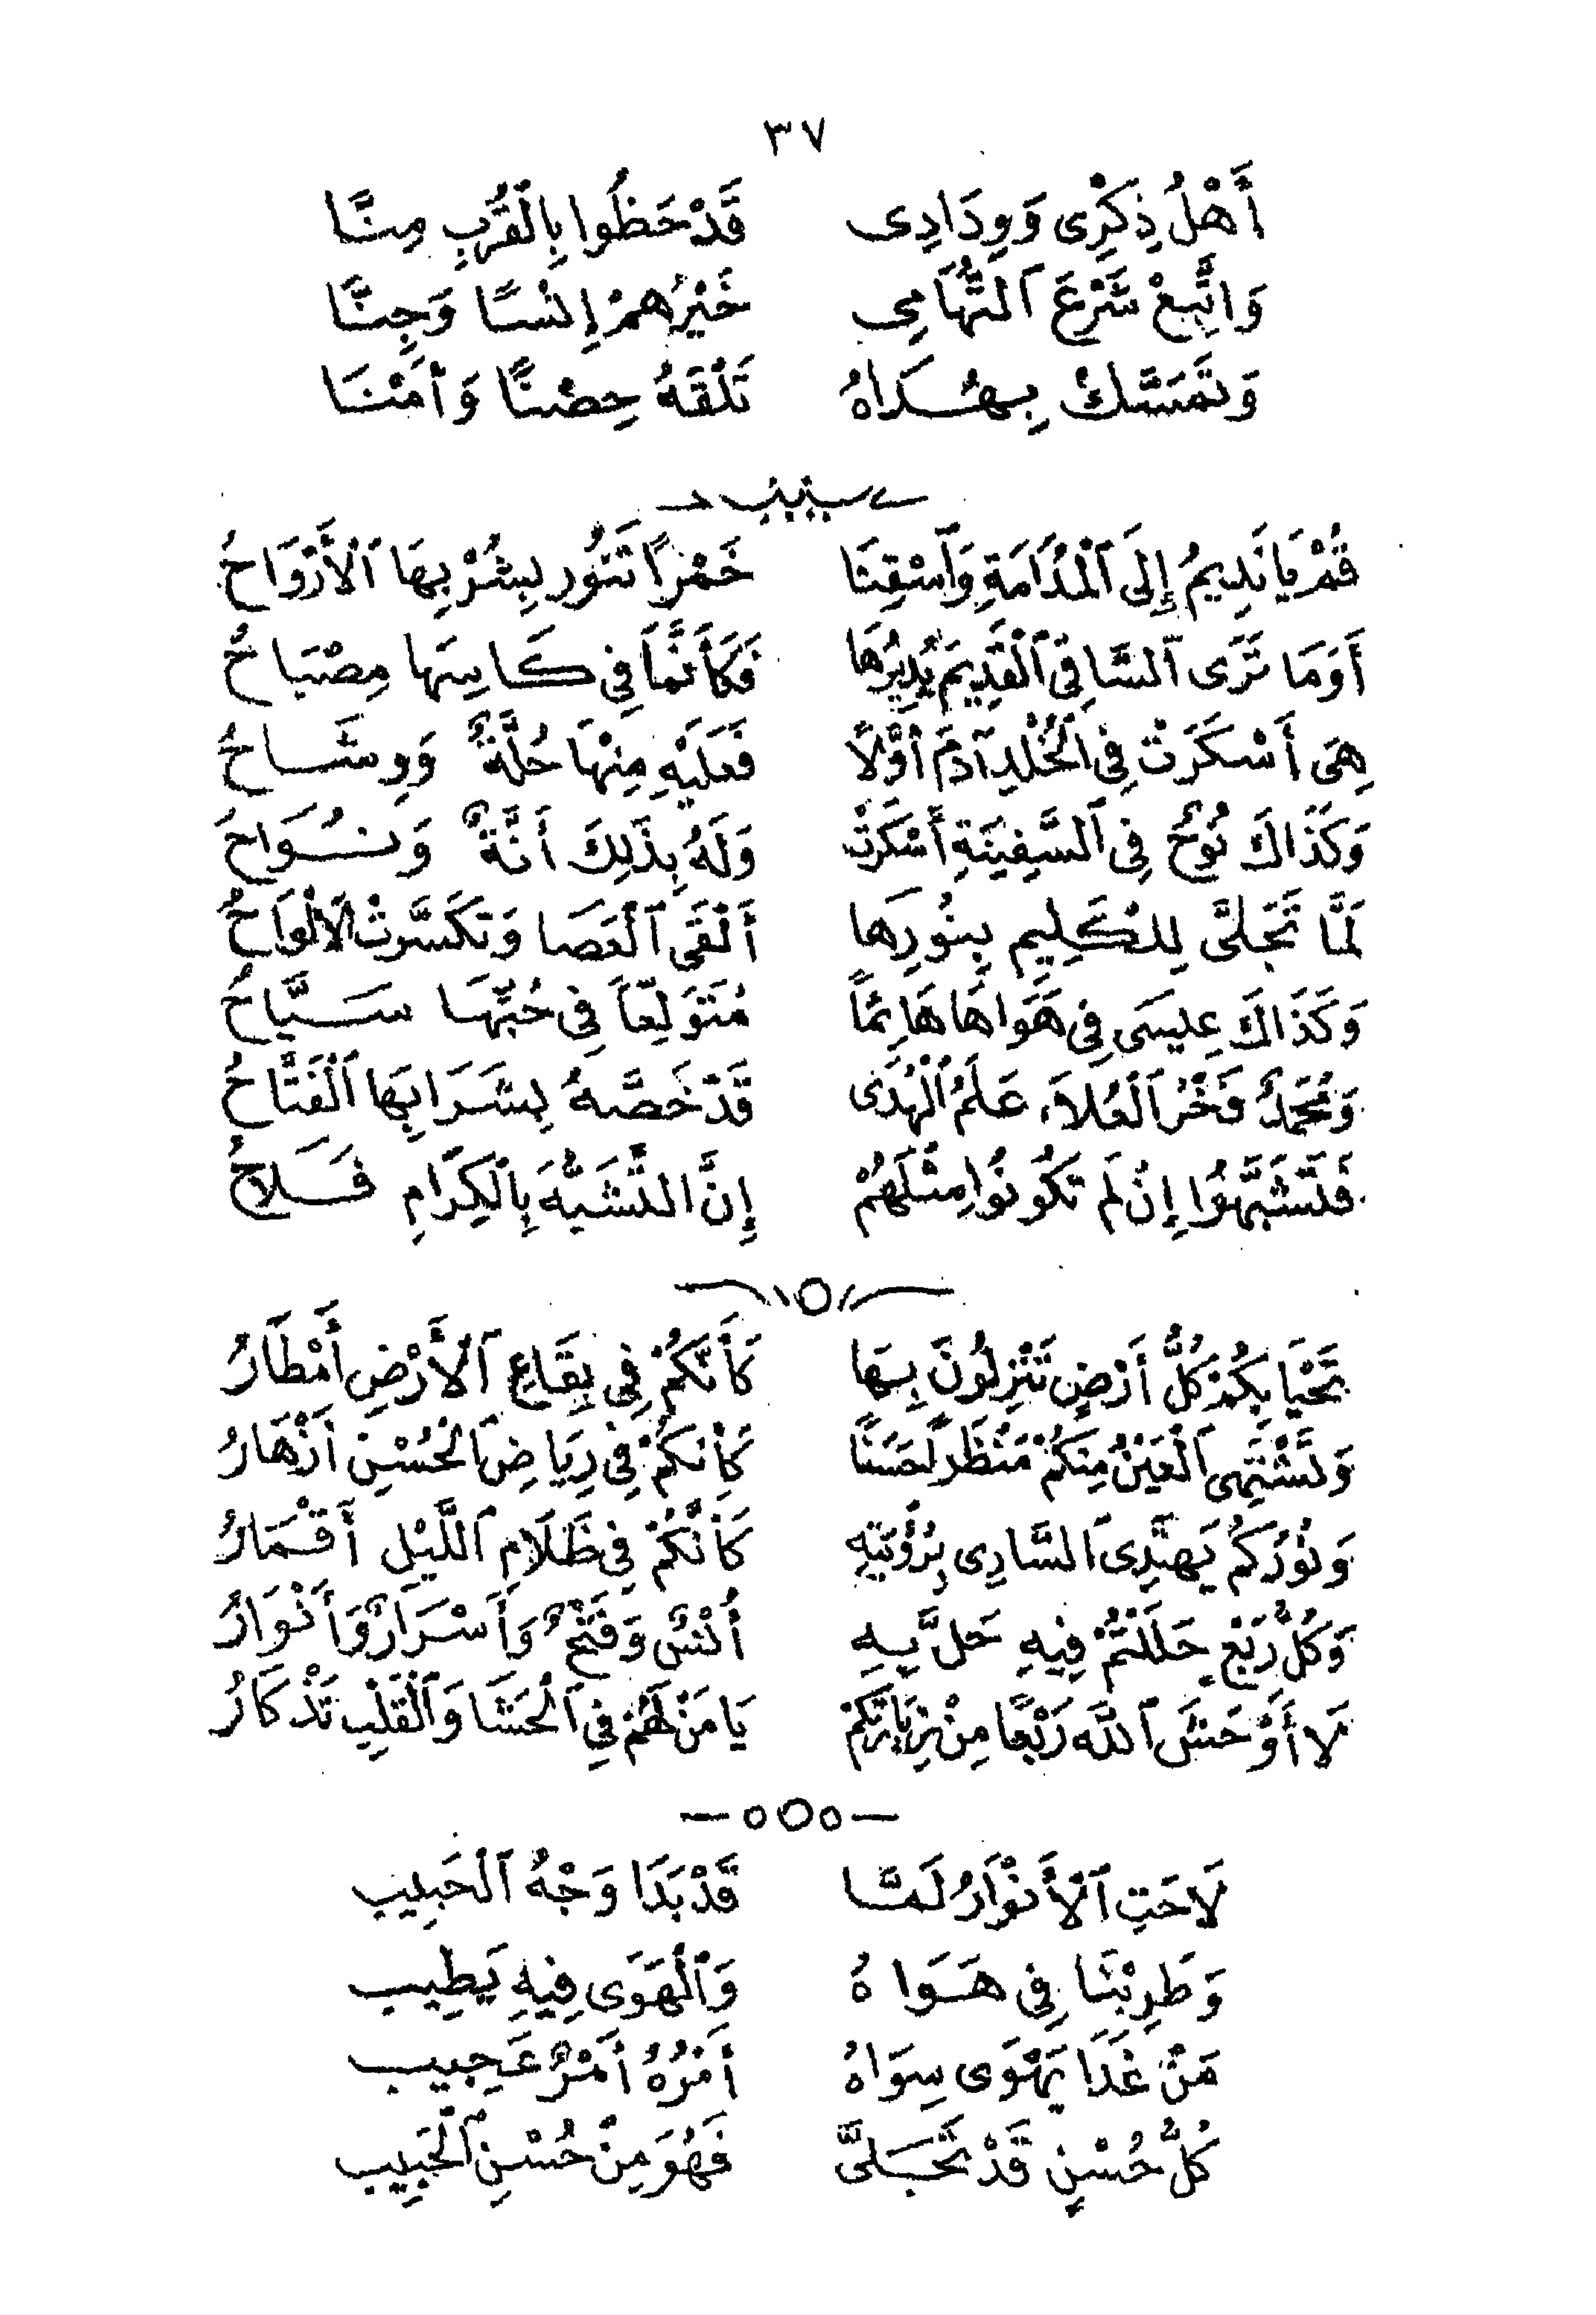 ٣٧
أَهْلُ ذِكْرِى وَوِدَادِى قَدْ حَظُوا بِالْقُرْبِ مِنَّا
وَاتَّبِعْ شَرْعَ ٱلتُّهَامِى خَيْرُهُمْ إِنْسًا وَجِنَّا
وَتَمَسَّكْ بِهُدَاهُ تَلْقَهُ حِصْنًا وَأَمْنَا
قُمْ يَا نَدِيمُ إِلَى ٱلْمُدَامَةِ وَٱسْقِنَا خَمْراً تَنُورُ بِشُرْبِهَا ٱلْأَرْوَاحُ
أَوَمَا تَرَى ٱلسَّاقِى ٱلْقَدِيمَ يُدِيرُهَا فَكَأَنَّمَا فِى كَاسِهَا مِصْبَاحُ
هِىَ أَسْكَرَتْ فِى ٱلْخُلْدِ آدَمَ أَوَّلًا فَعَلَيْهِ مِنْهَا حُلَّةٌ وَوِشَاحُ
وَكَذَاكَ نُوحٌ فِى ٱلسَّفِينَةِ أَسْكَرَتْ وَلَهُ بِذَلِكَ أَنَّةٌ وَنُوَاحُ
لَمَّا تَجَلَّى لِلْكَلِيمِ بِنُورِهَا أَلْقَى ٱلْعَصَا وَتَكَسَّرَتْ الَالْوَاحُ
وَكَذَاكَ عِيسَى فِى هَوَاهَا هَائِمًا مُتَوَلِّعاً فِى حُبِّهَا سَيَّاحُ
وَمُحَمَّدٌ فَخْرُ ٱلْعُلَاءِ عَلَمُ ٱلْهُدَى قَدْ خَصَّهُ بِشَرَابِهَا ٱلْفَتَّاحُ
فَتَشَبَّهُوا إِنْ لَم تَكُونُوا مِثْلَهُمْ إِنَّ التَّشَبُّهَ بِٱلْكِرَامِ فَلَاحُ
تَحْيَا بِكُمْ كُلُّ أَرْضٍ تَنْزِلُونَ بِهَا كَأَنَّكُمْ فِى بِقَاعِ ٱلْأَرْضِ أَمْطَارُ
وَتَشْتَهِى ٱلْعَيْنُ مِنْكُمْ مَنْظَرًا حَسَنًا كَأَنَّكُمْ فِى رِيَاضِ ٱلْحُسْنِ أَزْهَارُ
وَنُورُكُمْ يَهْتَدِى ٱلسَّارِى بِرُؤْيَتِهِ كَأَنَّكُمْ فِى ظَلَامِ ٱللَّيْلِ أَقْمَارُ
وَكُلُّ رَبْعٍ حَلَلْتُمْ فِيهِ حَلَّ بِهِ أُنْسٌ وَفَتْحٌ وَأَسْرَارٌ وَأَنْوَارُ
لَا أَوْحَشَ ٱللَّه رَبْعًا مِنْ زِيَارَتِكُمْ يَا مَنْ لَهُمْ فِى ٱلْحَشَا وَٱلْقَلْبِ تَذْكَارُ
لَاحَتِ ٱلْأَنْوَارُ لَمَّا قَدْ بَدَا وَجْهُ ٱلْحَبِيب
وَطَرِبْنَا فِى هَوَاهُ وَٱلْهَوَى فِيهِ يَطِيب
مَنْ غَدَا يَهْوَى سِوَاهُ أَمْرُهُ أَمْرٌ عَجِيب
كُلُّ حُسْنٍ قَدْ تَجَلَّى فَهُوَ مِنْ حُسْنِ ٱلْحَبِيب